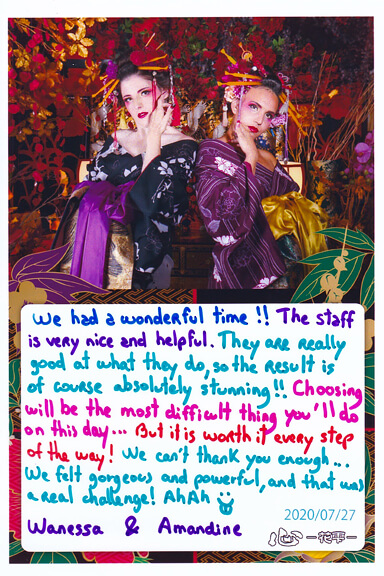 We had a wonderful time !! The staff
is very nice and helpful. They are really
good at what they do, so the result is
of course absolutely stunning !! Choosing
will be the most difficult thing you'll do
on this day... But it is worth it every step
of the way! We can't thank you enough...
We felt gorgeous and powerful, and that was
a real challenge! AhAh
2020/07/27
Wanessa & Amandine